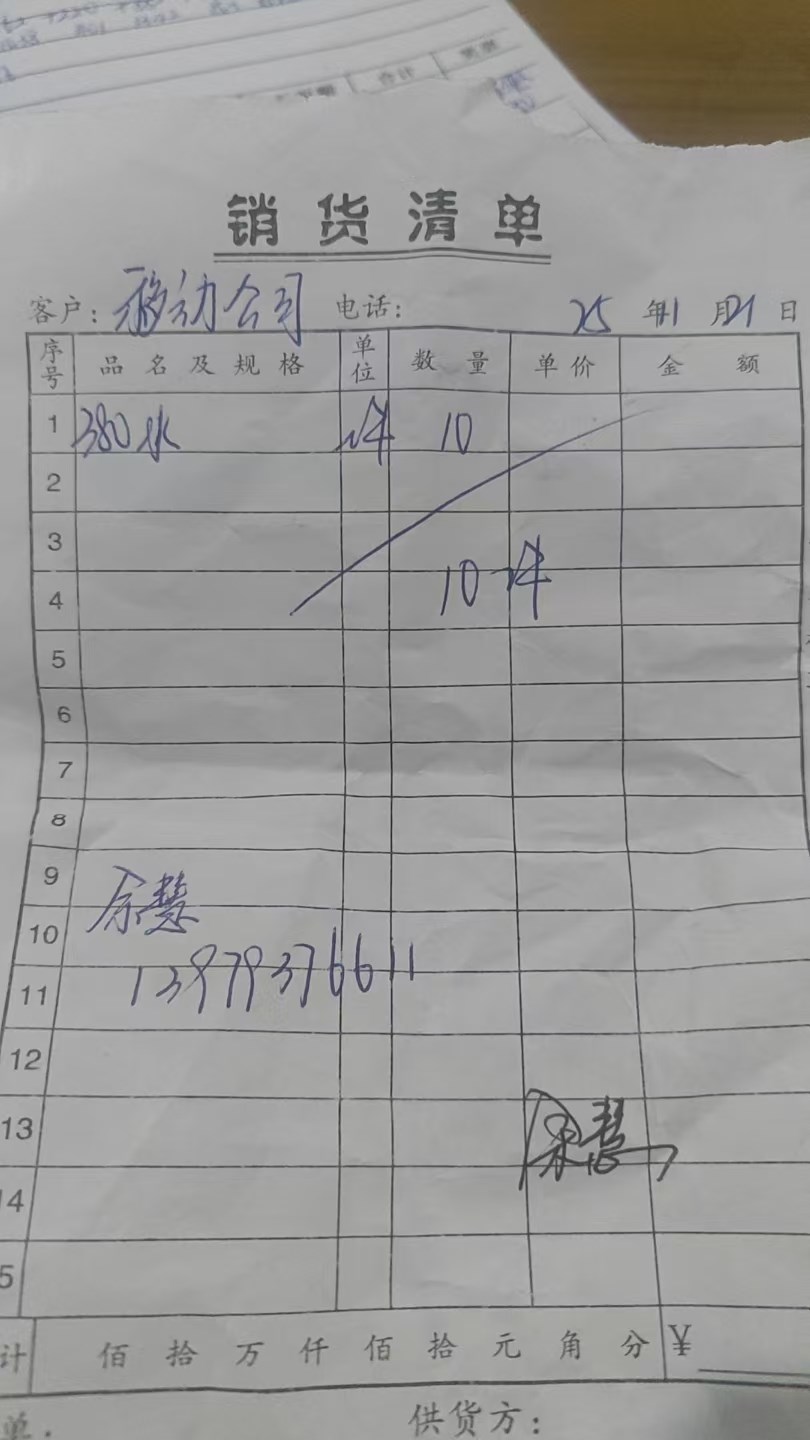 销货清单
客户：移动公司 电话： 25年11月21日
序号 品名及规格 单位 数量 单价 金额
1 380水 件 10
2
3
4 10件
5
6
7
8
9
10 余慧
11 13979376611
12
13 余慧
14
5
计 佰拾万仟佰拾元角分 ¥
单. 供货方：